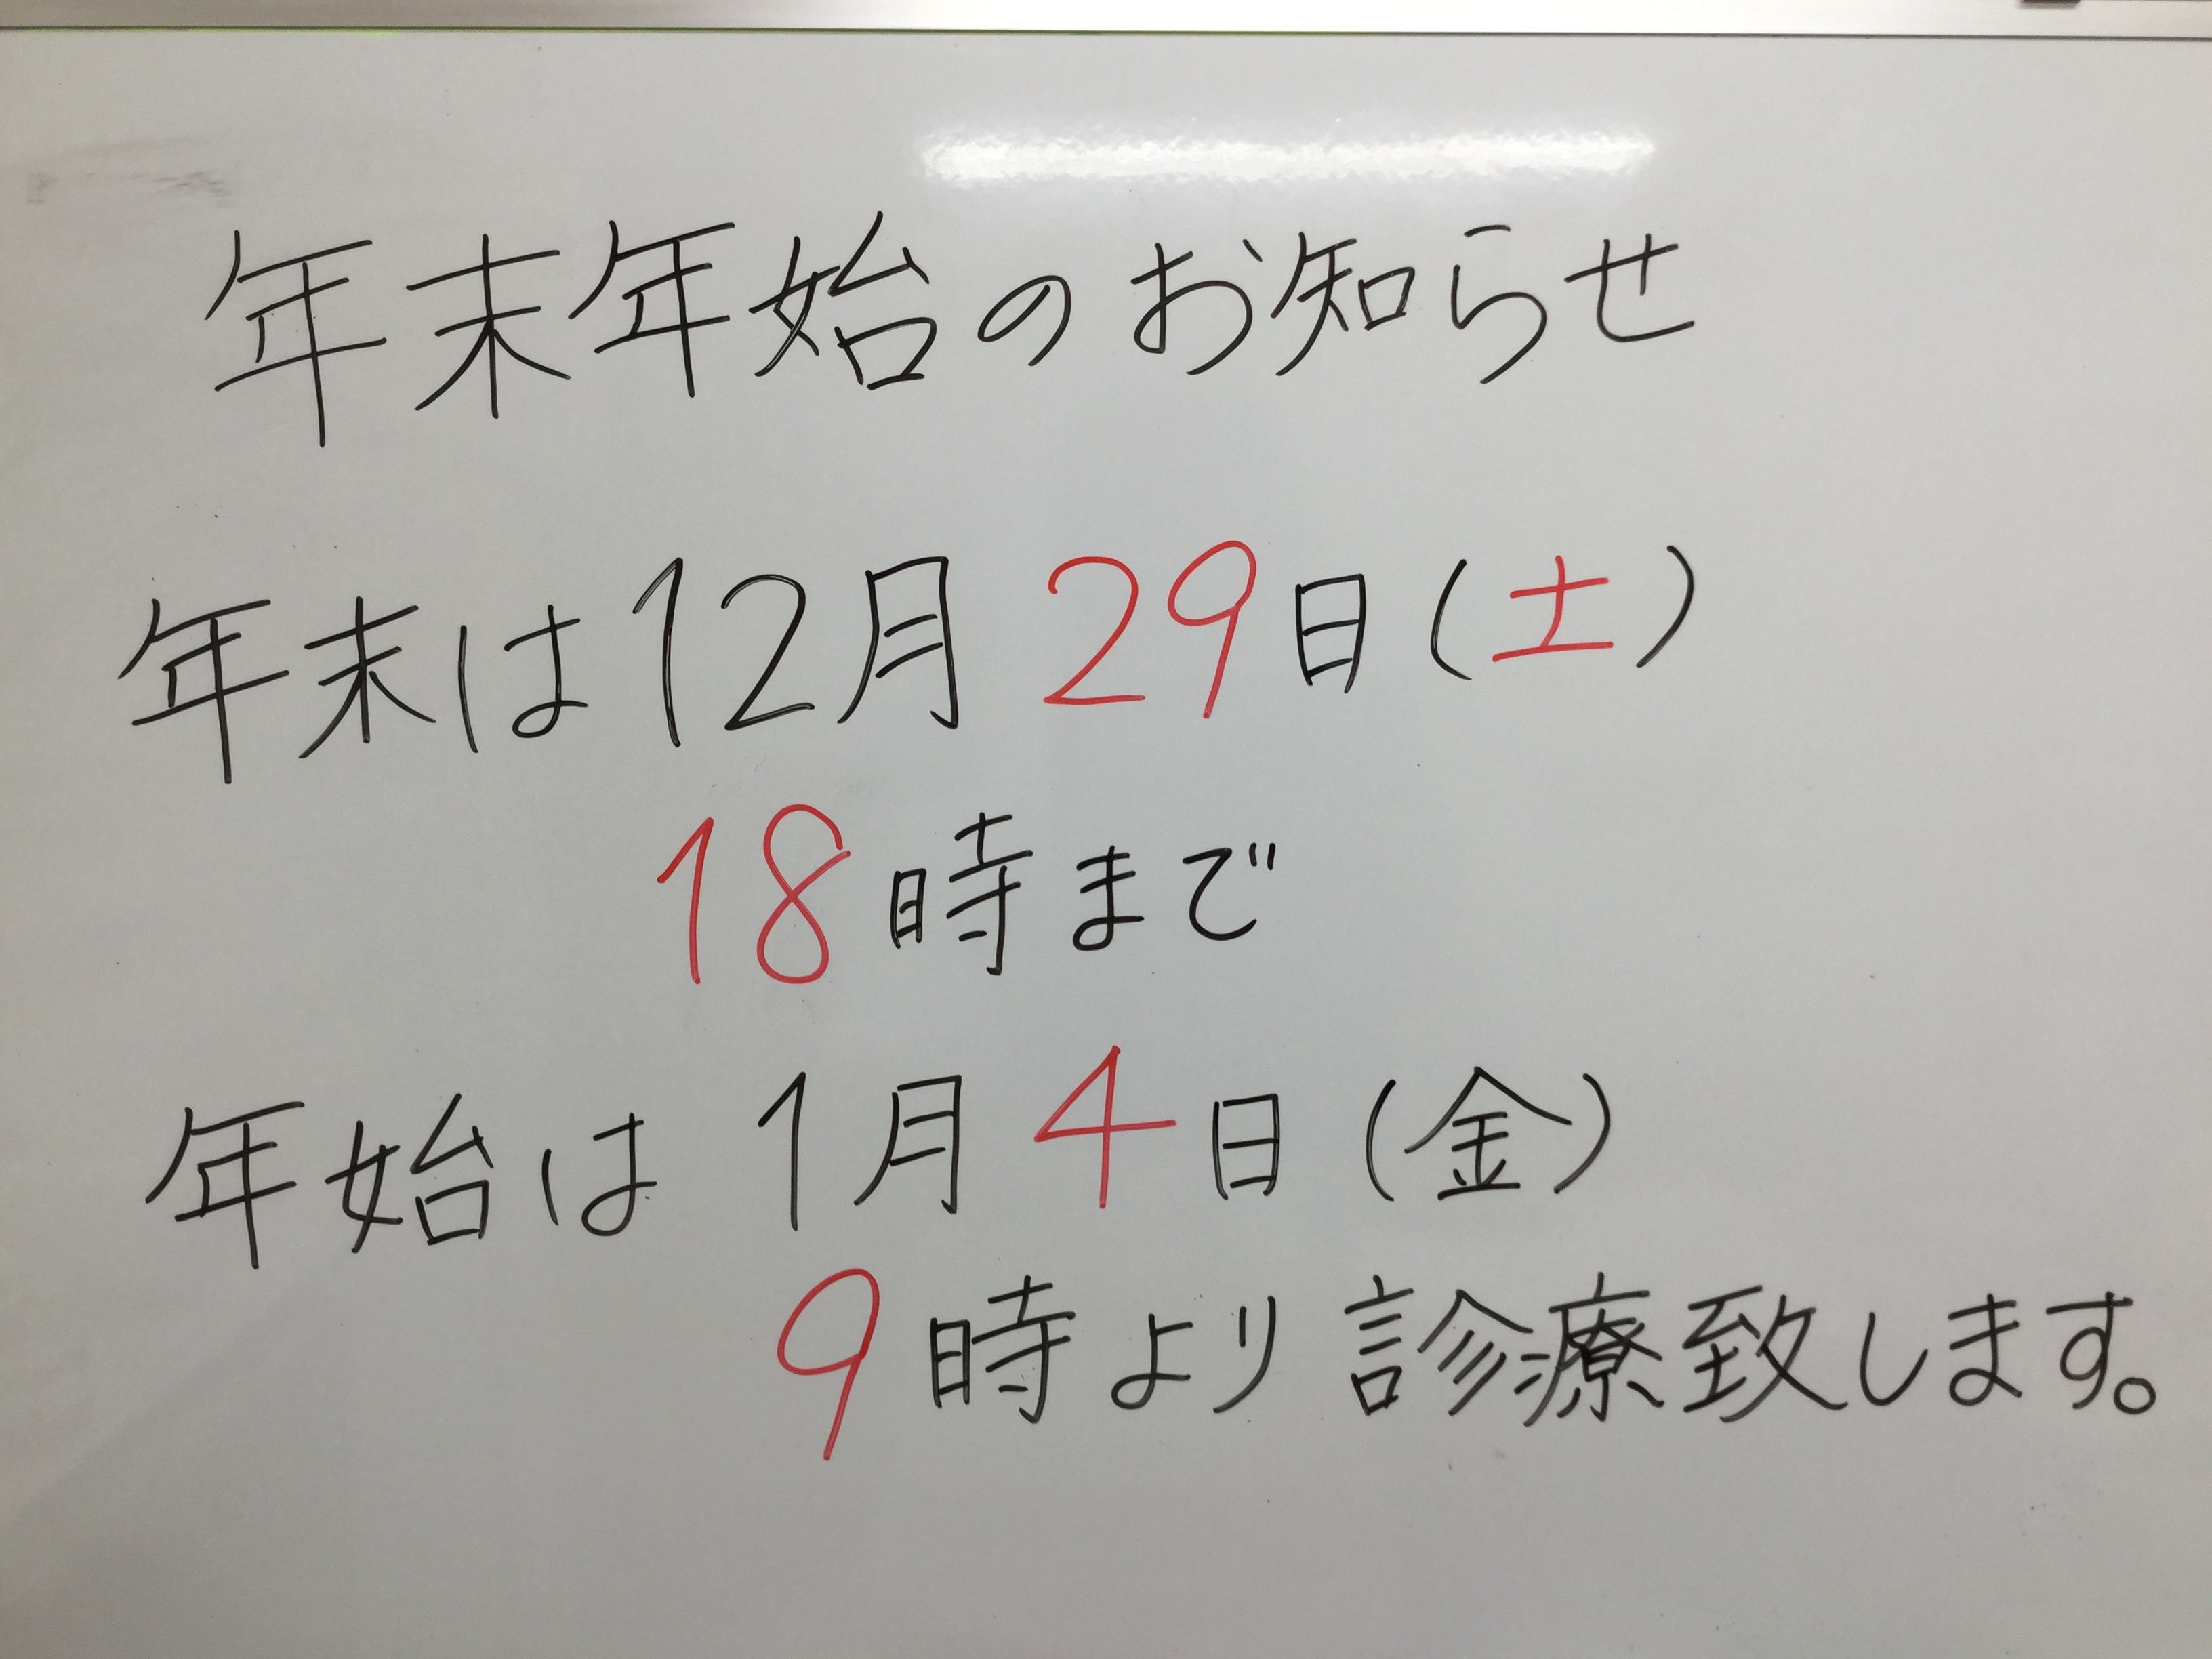 年末年始のお知らせ
年末は12月29日(土)
18時まで
年始は1月4日(金)
9時より診療致します。